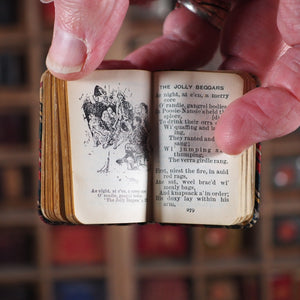 As night, at e'en, a merry
core
"The Jolly Beggars"
THE JOLLY BEGGARS
As night, at e'en, a merry
core
O' randie, gangrel bodies
In Poosie-Nansie's held the
splore,
To drink their orra
Wi' quaffing and
They ranted
Wi' jumping
The verra girdle rang.
First, niest the fire, in auld
red rags,
Ane sat, weel brac'd wi'
mealy bags,
And knapsack a' in order;
His doxy lay within his
arm,
279